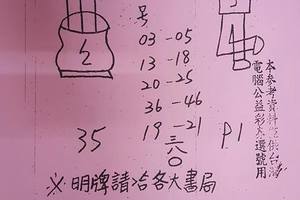 号
2
03-05
13-18
20-25
36-46
19-21
35
380
P1
※明牌請洽各大書局
本參考資料僅供台灣
電腦公益彩券選號用